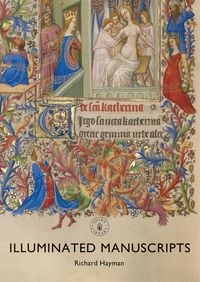 de sca katherina
Virgo sancta katherina
grecie gemma urbe alex
ILLUMINATED MANUSCRIPTS
Richard Hayman